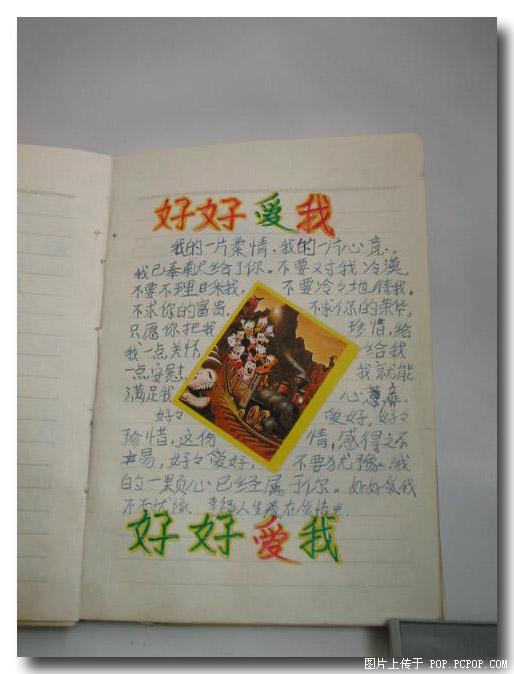 好好爱我
我的一片柔情、我的一片心意。
我已奉献给了你。不要对我冷漠
不要不理睬我, 不要冷冷地待我。
不求你的富贵, 不求你的荣华,
只愿你把我 珍惜,给
我一点关怀 给我
一点安慰 我就能
满足我 心意
好々 爱好,好々
珍惜,这份 情,感得之不
易,好々爱好, 不要犹豫,我
的一颗心已经属于你。好好爱我
不要犹豫 幸福人生藏在
好好爱我
图片上传于 POP.PCPOP.COM